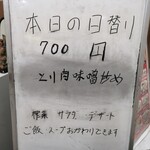 本日の日替り
700 円
とり肉味噌炒め
惣菜 サラダ デザート
ご飯 スープおかわりできます